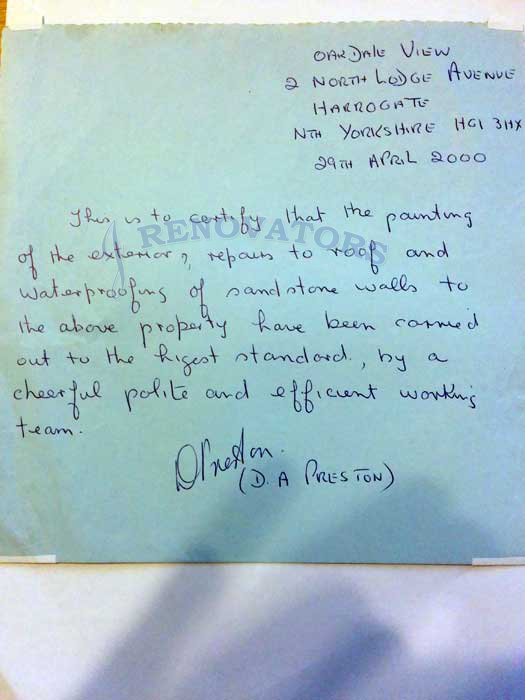 OAKDALE VIEW
2 NORTH LODGE AVENUE
HARROGATE
NTH YORKSHIRE HG1 3HX
29TH APRIL 2000
This is to certify that the painting
RENOVATORS
of the exterior, repairs to roof and
waterproofing of sandstone walls to
the above property have been carried
out to the higest standard, by a
cheerful polite and efficient working
team.
D Preston.
(D. A PRESTON)